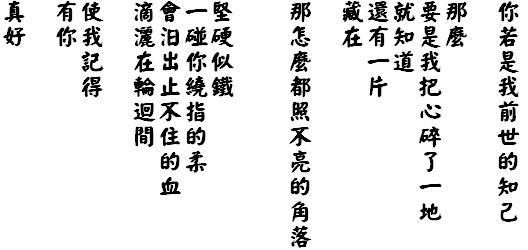 你若是我前世的知己
那麼
要是我把心碎了一地
就知道
還有一片
藏在
那怎麼都照不亮的角落
堅硬似鐵
一碰你繞指的柔
會汨出止不住的血
滴灑在輪迴間
使我記得
有你
真好